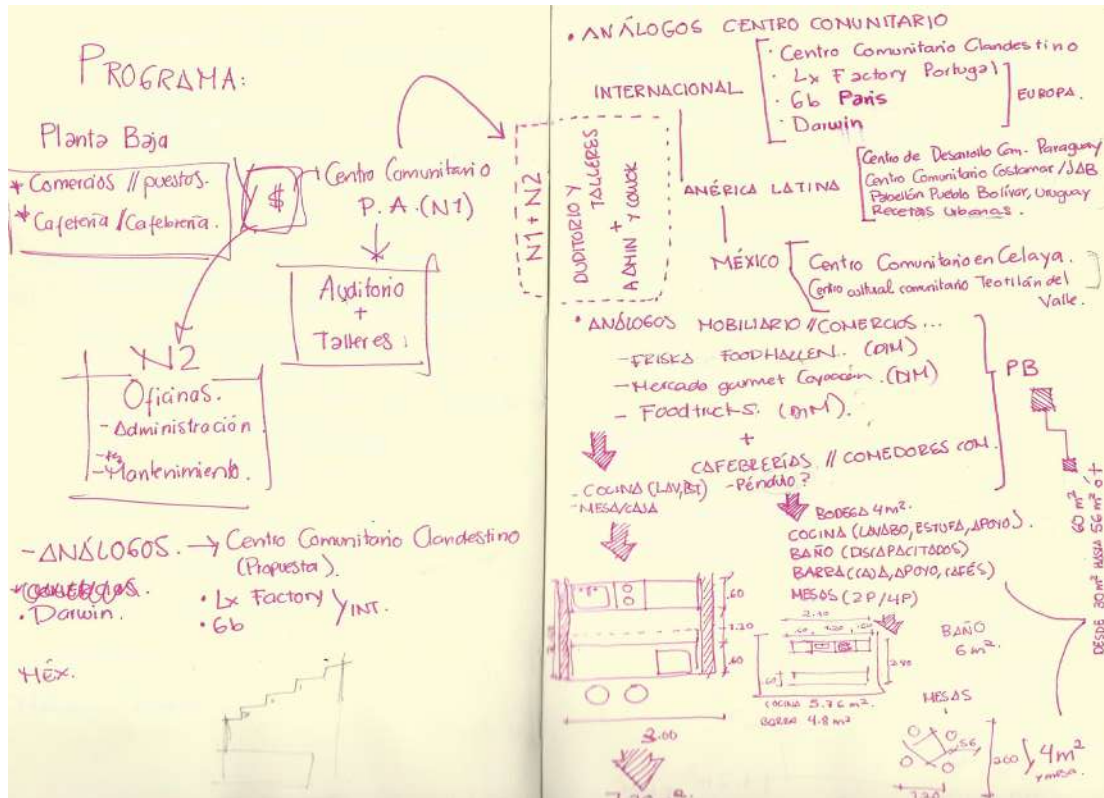 PROGRAMA:
Planta Baja
* Comercios // puestos.
* Cafetería / Cafebrería.
$
Centro Comunitario
P. A. (N1)
Auditorio
+
Talleres
N2
Oficinas.
- Administración
- Mantenimiento.
- ANÁLOGOS. → Centro Comunitario Clandestino
(Propuesta).
• Darwin.
• Lx Factory
• 6b
INT.
MÉX.
• ANÁLOGOS CENTRO COMUNITARIO
INTERNACIONAL
• Centro Comunitario Clandestino
• Lx Factory Portugal
• 6b Paris
• Darwin
EUROPA.
N1 + N2
AUDITORIO Y
TALLERES
+
ADMIN Y
AMÉRICA LATINA
Centro de Desarrollo Com. Paraguay
Centro Comunitario Costamar / JAB
Pabellón Pueblo Bolívar, Uruguay
Recetas Urbanas.
MÉXICO
Centro Comunitario en Celaya.
Centro cultural comunitario Teotilán del
Valle.
• ANÁLOGOS MOBILIARIO // COMERCIOS...
- FRISKA FOODHALLEN. (DIM)
- Mercado gurmet Coyoacán. (DIM)
- Foodtrucks. (DIM).
+
CAFEBRERÍAS // COMEDORES COM.
- Péndulo?
PB
- COCINA (LAV, BT)
- MESA/CAJA
BODEGA 4m².
COCINA (LAVABO, ESTUFA, APOYO).
BAÑO (DISCAPACITADOS)
BARRA (CAJA, APOYO, CAFÉS)
MESAS (2P/4P)
60 m²
DESDE 30 m² HASTA 56 m² ó +
.60
1.20
.60
3.00
2.40
.60 1.20 .60
2.40
.60
COCINA 5.76 m².
BARRA 4.8 m²
BAÑO
6 m².
MESAS
.56
2.00
4 m²
y mesa.